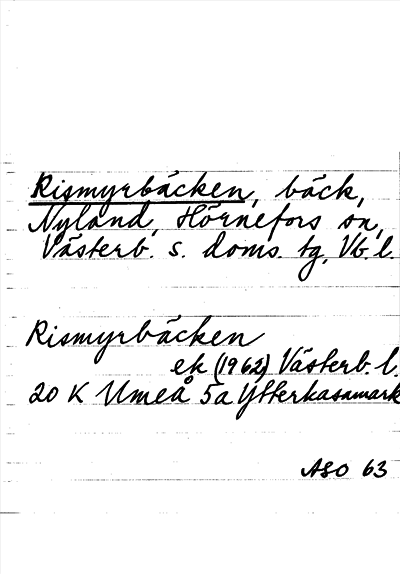 Rismyrbäcken, bäck,
Nyland, Hörnefors sn,
Västerb. s. doms. tg, Vb. l.
Rismyrbäcken
ek (1962) Västerb. l.
20 K Umeå 5a Ytterkasamark
ASO 63